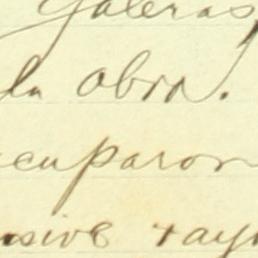 galeras
la obra.
cuparon
sive ray